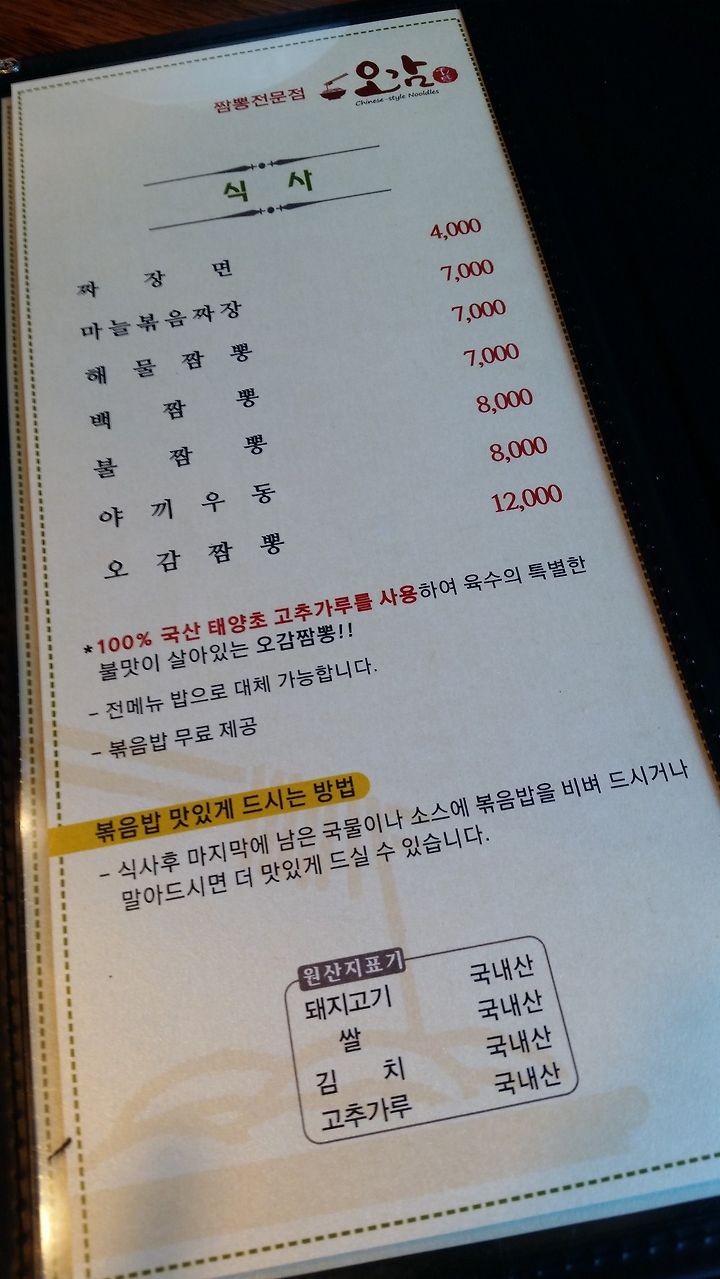 짬뽕전문점 오감
Chinese-style Nooldles
식 사
짜 장 면 4,000
마늘볶음짜장 7,000
해 물 짬 뽕 7,000
백 짬 뽕 7,000
불 짬 뽕 8,000
야 끼 우 동 8,000
오 감 짬 뽕 12,000
*100% 국산 태양초 고추가루를 사용하여 육수의 특별한
불맛이 살아있는 오감짬뽕!!
- 전메뉴 밥으로 대체 가능합니다.
- 볶음밥 무료 제공
볶음밥 맛있게 드시는 방법
- 식사후 마지막에 남은 국물이나 소스에 볶음밥을 비벼 드시거나
말아드시면 더 맛있게 드실 수 있습니다.
원산지표기
돼지고기 국내산
쌀 국내산
김 치 국내산
고추가루 국내산